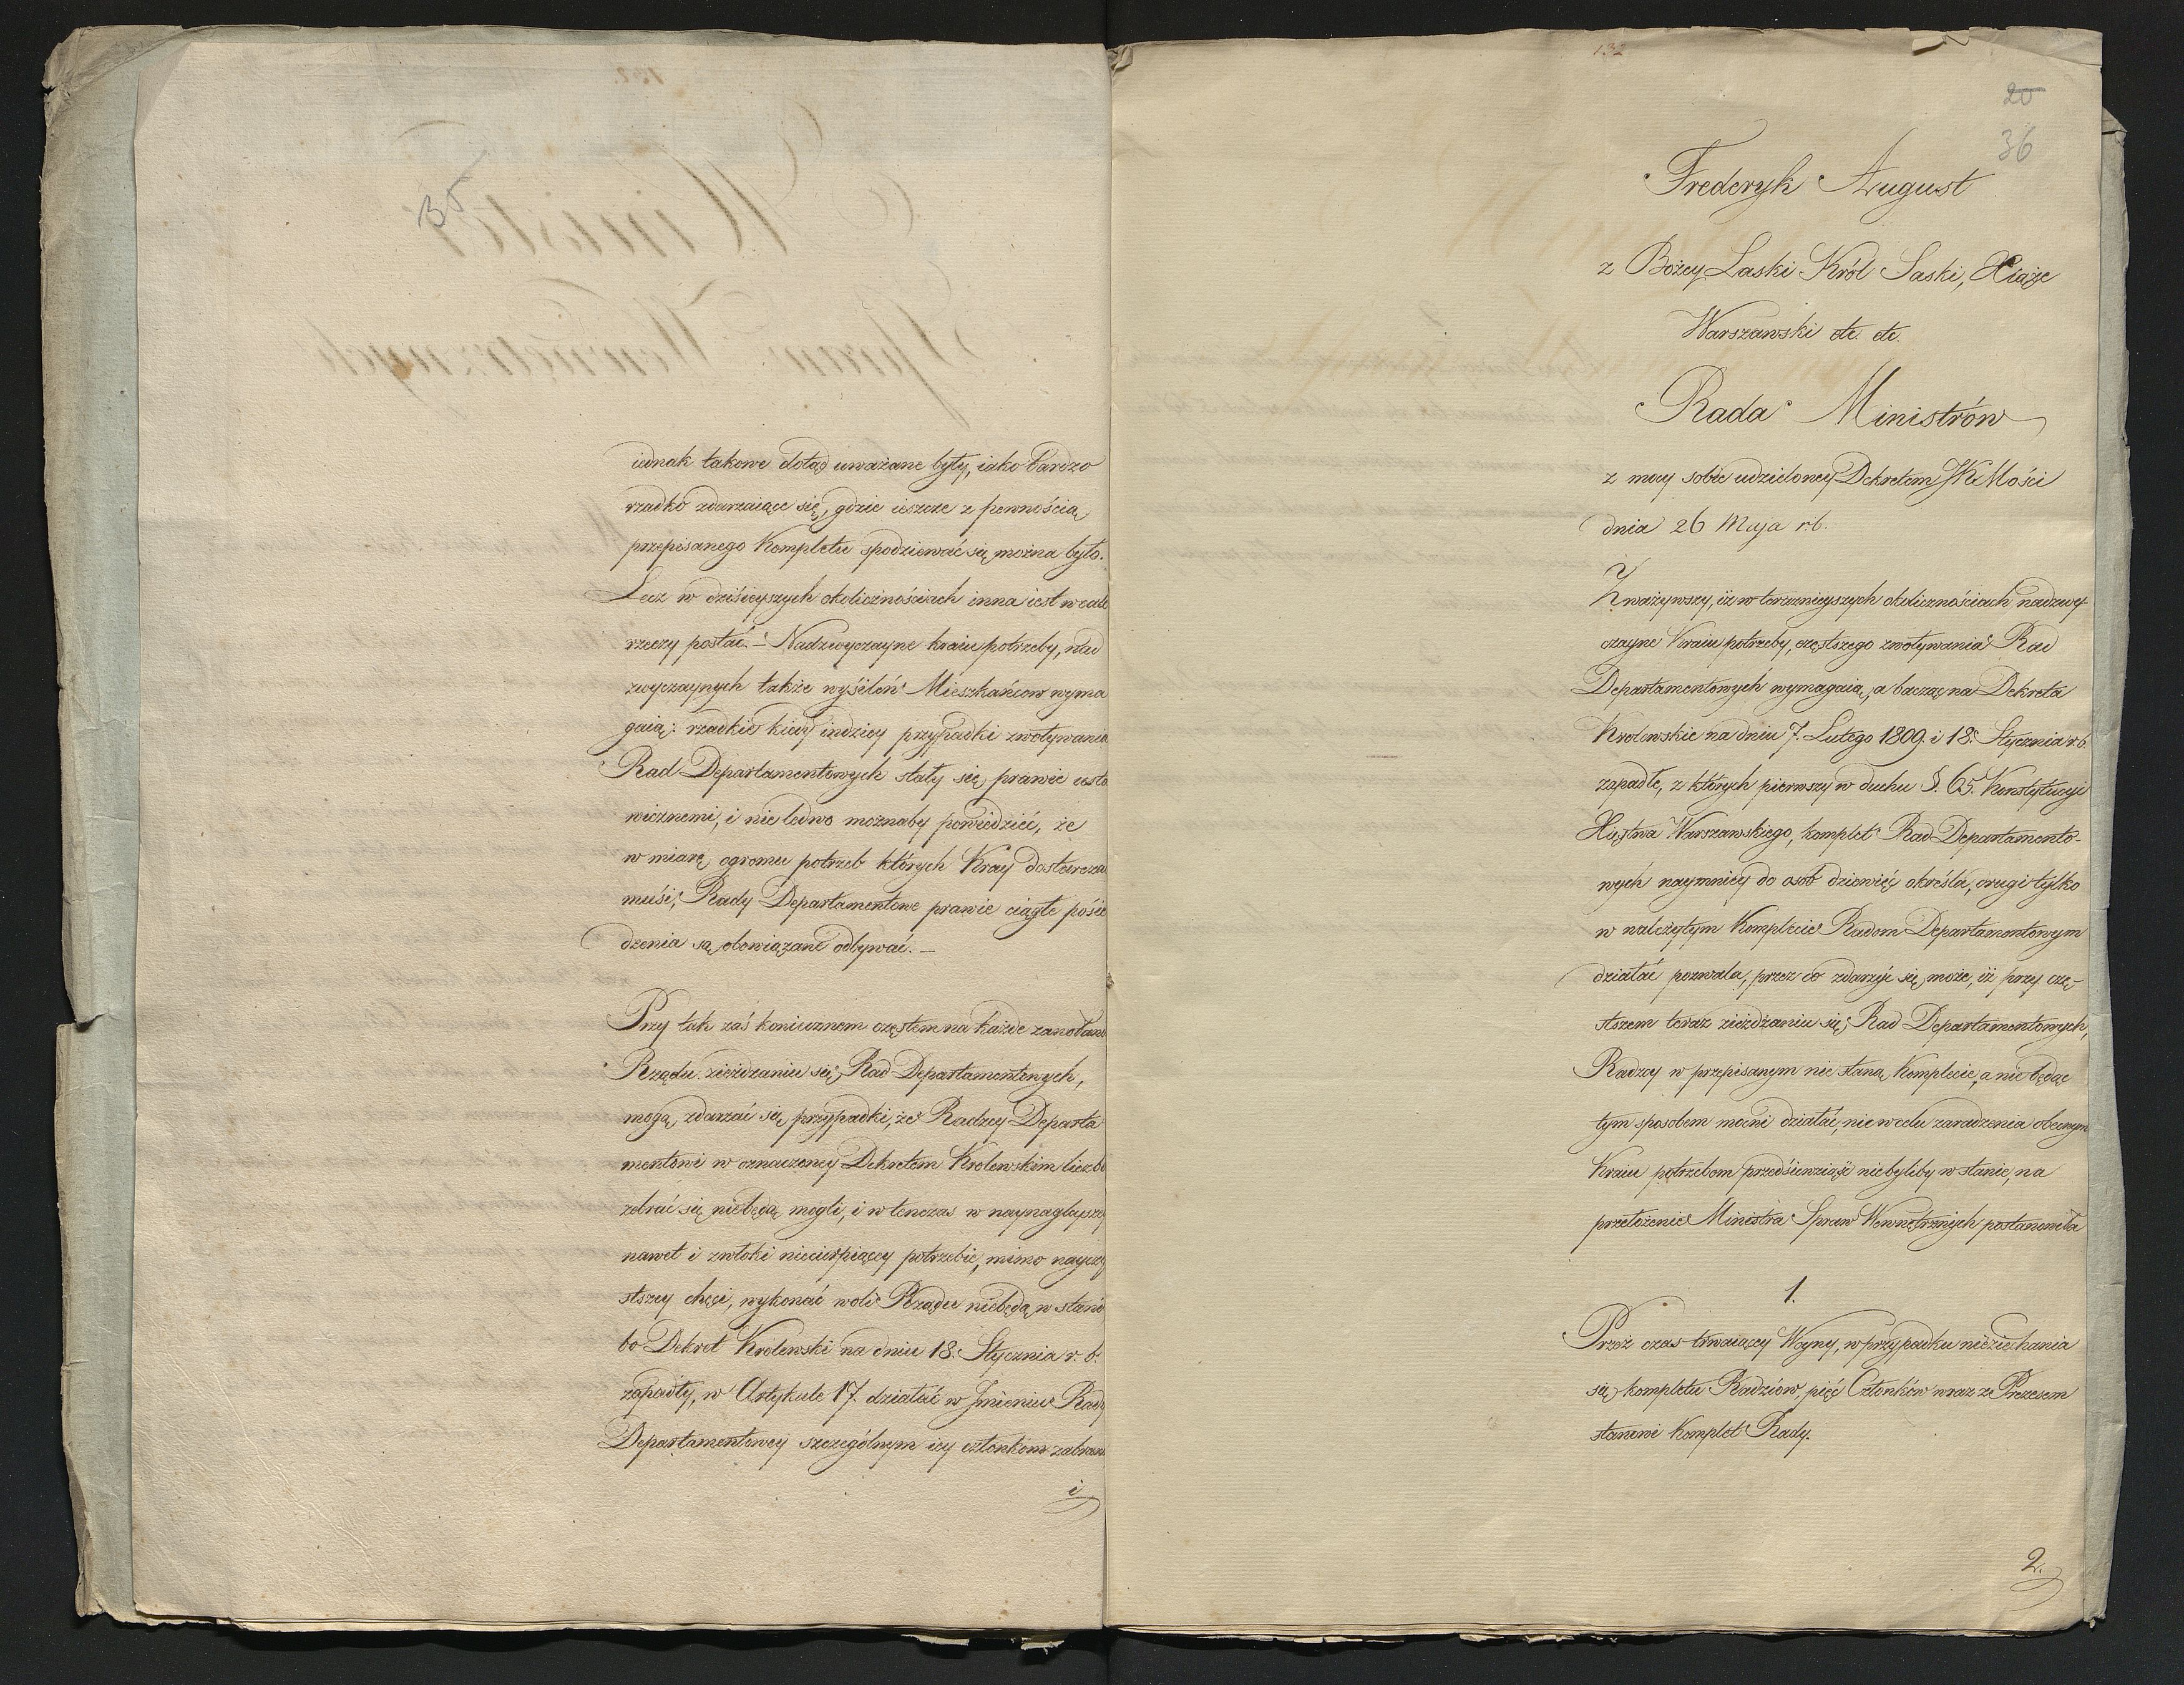 35
iednak takowe dotąd uważane były, iako bardzo
rzadko zdarzaiące się, gdzie ieszcze z pewnością
przepisanego Kompletu spodziewać się można było.
Lecz w dziśieyszych okolicznościach inna iest wcale
rzeczy postać. – Nadzwyczayne kraiu potrzeby, nad
zwyczaynych także wyśileń Mieszkańcow wyma
gaią: rzadkie kiedy indziey przypadki zwoływania
Rad Departamentowych stały się prawie usta
wicznemi, i nie ledwo moznaby powiedzieć, że
w miarę ogromu potrzeb których Kray dostarczać
muśi, Rady Departamentowe prawie ciągłe pośie
dzenia są obowiązane odbywać. –
Przy tak zaś koniecznem częstem na każde zawołanie
Rządu zieżdzaniu się Rad Departamentowych,
mogą zdarzać się przypadki, że Radzcy Departa
mentowi w oznaczoney Dekretem Krolewskim liczbie
zebrać się niebędą mogli, i w tenczas w naynagleyszey
nawet i zwłoki niecierpiącey potrzebie, mimo nayczy
stszey chęci, wykonać woli Rządu niebędą w stanie
bo Dekret Krolewski na dniu 18. Stycznia r. b.
zapadły, w Artykule 17. działać w Jmieniu Rady
Departamentowey szczególnym iey członkom zabrania
i
132
20
36
Frederyk August
z Bożey Łaski Król Saski, Xiąże
Warszawski etc. etc.
Rada Ministrów
z mocy sobie udzieloney Dekretem JKMości
dnia 26 Maja rb.
Zważywszy, iż w teraznieyszych okolicznościach nadzwy-
czayne Kraiu potrzeby, częstszego zwoływania Rad
Departamentowych wymagaią, a bacząc na Dekreta
Krolewskie na dniu 7. Lutego 1809. i 18. Stycznia r.b.
zapadłe, z których pierwszy w duchu §. 65. Konstytucyi
Xięstwa Warszawskiego, komplet Rad Departamento-
wych naymniey do osob dziewięć określa, drugi tylko
w należytym Komplecie Radom Departamentowym
działać pozwala, przez co zdarzyć się może, iż przy czę-
stszem teraz zieżdżaniu się Rad Departamentowych,
Radzcy w przepisanym nie staną Komplecie, a nie będąc
tym sposobem mocni działać, nic w celu zaradzenia obecnym
Kraiu potrzebom przedśiewziąść niebyliby w stanie, na
przełożenie Ministra Spraw Wewnętrznych postanowiła
1.
Przez czas trwaiącey Woyny, w przypadku nieziechania
się kompletu Radzców, pięć Członków wraz ze Prezesem
stanowi Komplet Rady.
2.